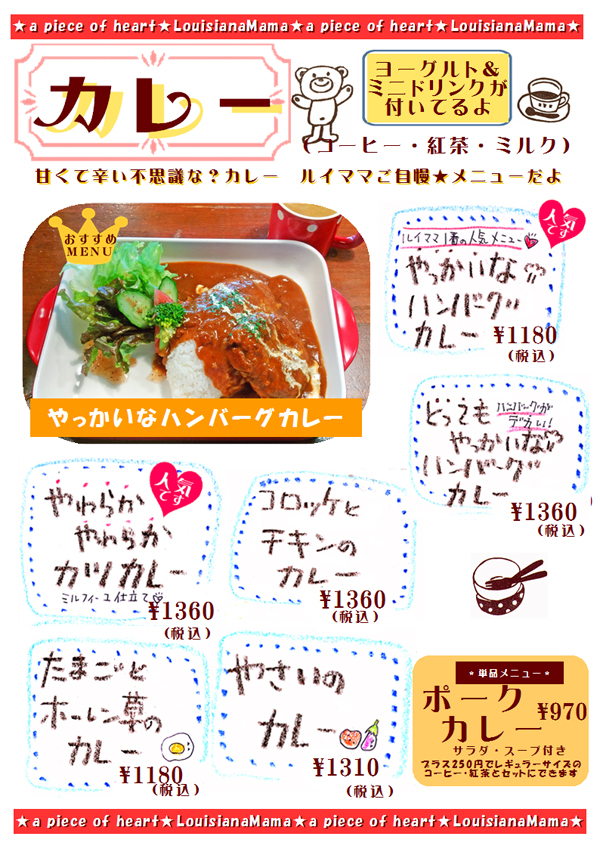 ★a piece of heart★LouisianaMama★a piece of heart★LouisianaMama★
カレー
ヨーグルト＆
ミニドリンクが
付いてるよ
(コーヒー・紅茶・ミルク)
甘くて辛い不思議な？カレー　ルイママご自慢★メニューだよ
おすすめ
MENU
やっかいなハンバーグカレー
人気です
ルイママ1番の人気メニュー
やっかいな
ハンバーグ
カレー
¥1180
(税込)
どっても
ハンバーグが
デカい!
やっかいな
ハンバーグ
カレー
¥1360
(税込)
人気です
やわらか
やわらか
カツカレー
ミルフィーユ仕立て
¥1360
(税込)
コロッケと
チキンの
カレー
¥1360
(税込)
たまごと
ホーレン草の
カレー
¥1180
(税込)
やさいの
カレー
¥1310
(税込)
★単品メニュー★
ポーク
カレー
¥970
サラダ・スープ付き
プラス250円でレギュラーサイズの
コーヒー・紅茶とセットにできます
★a piece of heart★LouisianaMama★a piece of heart★LouisianaMama★